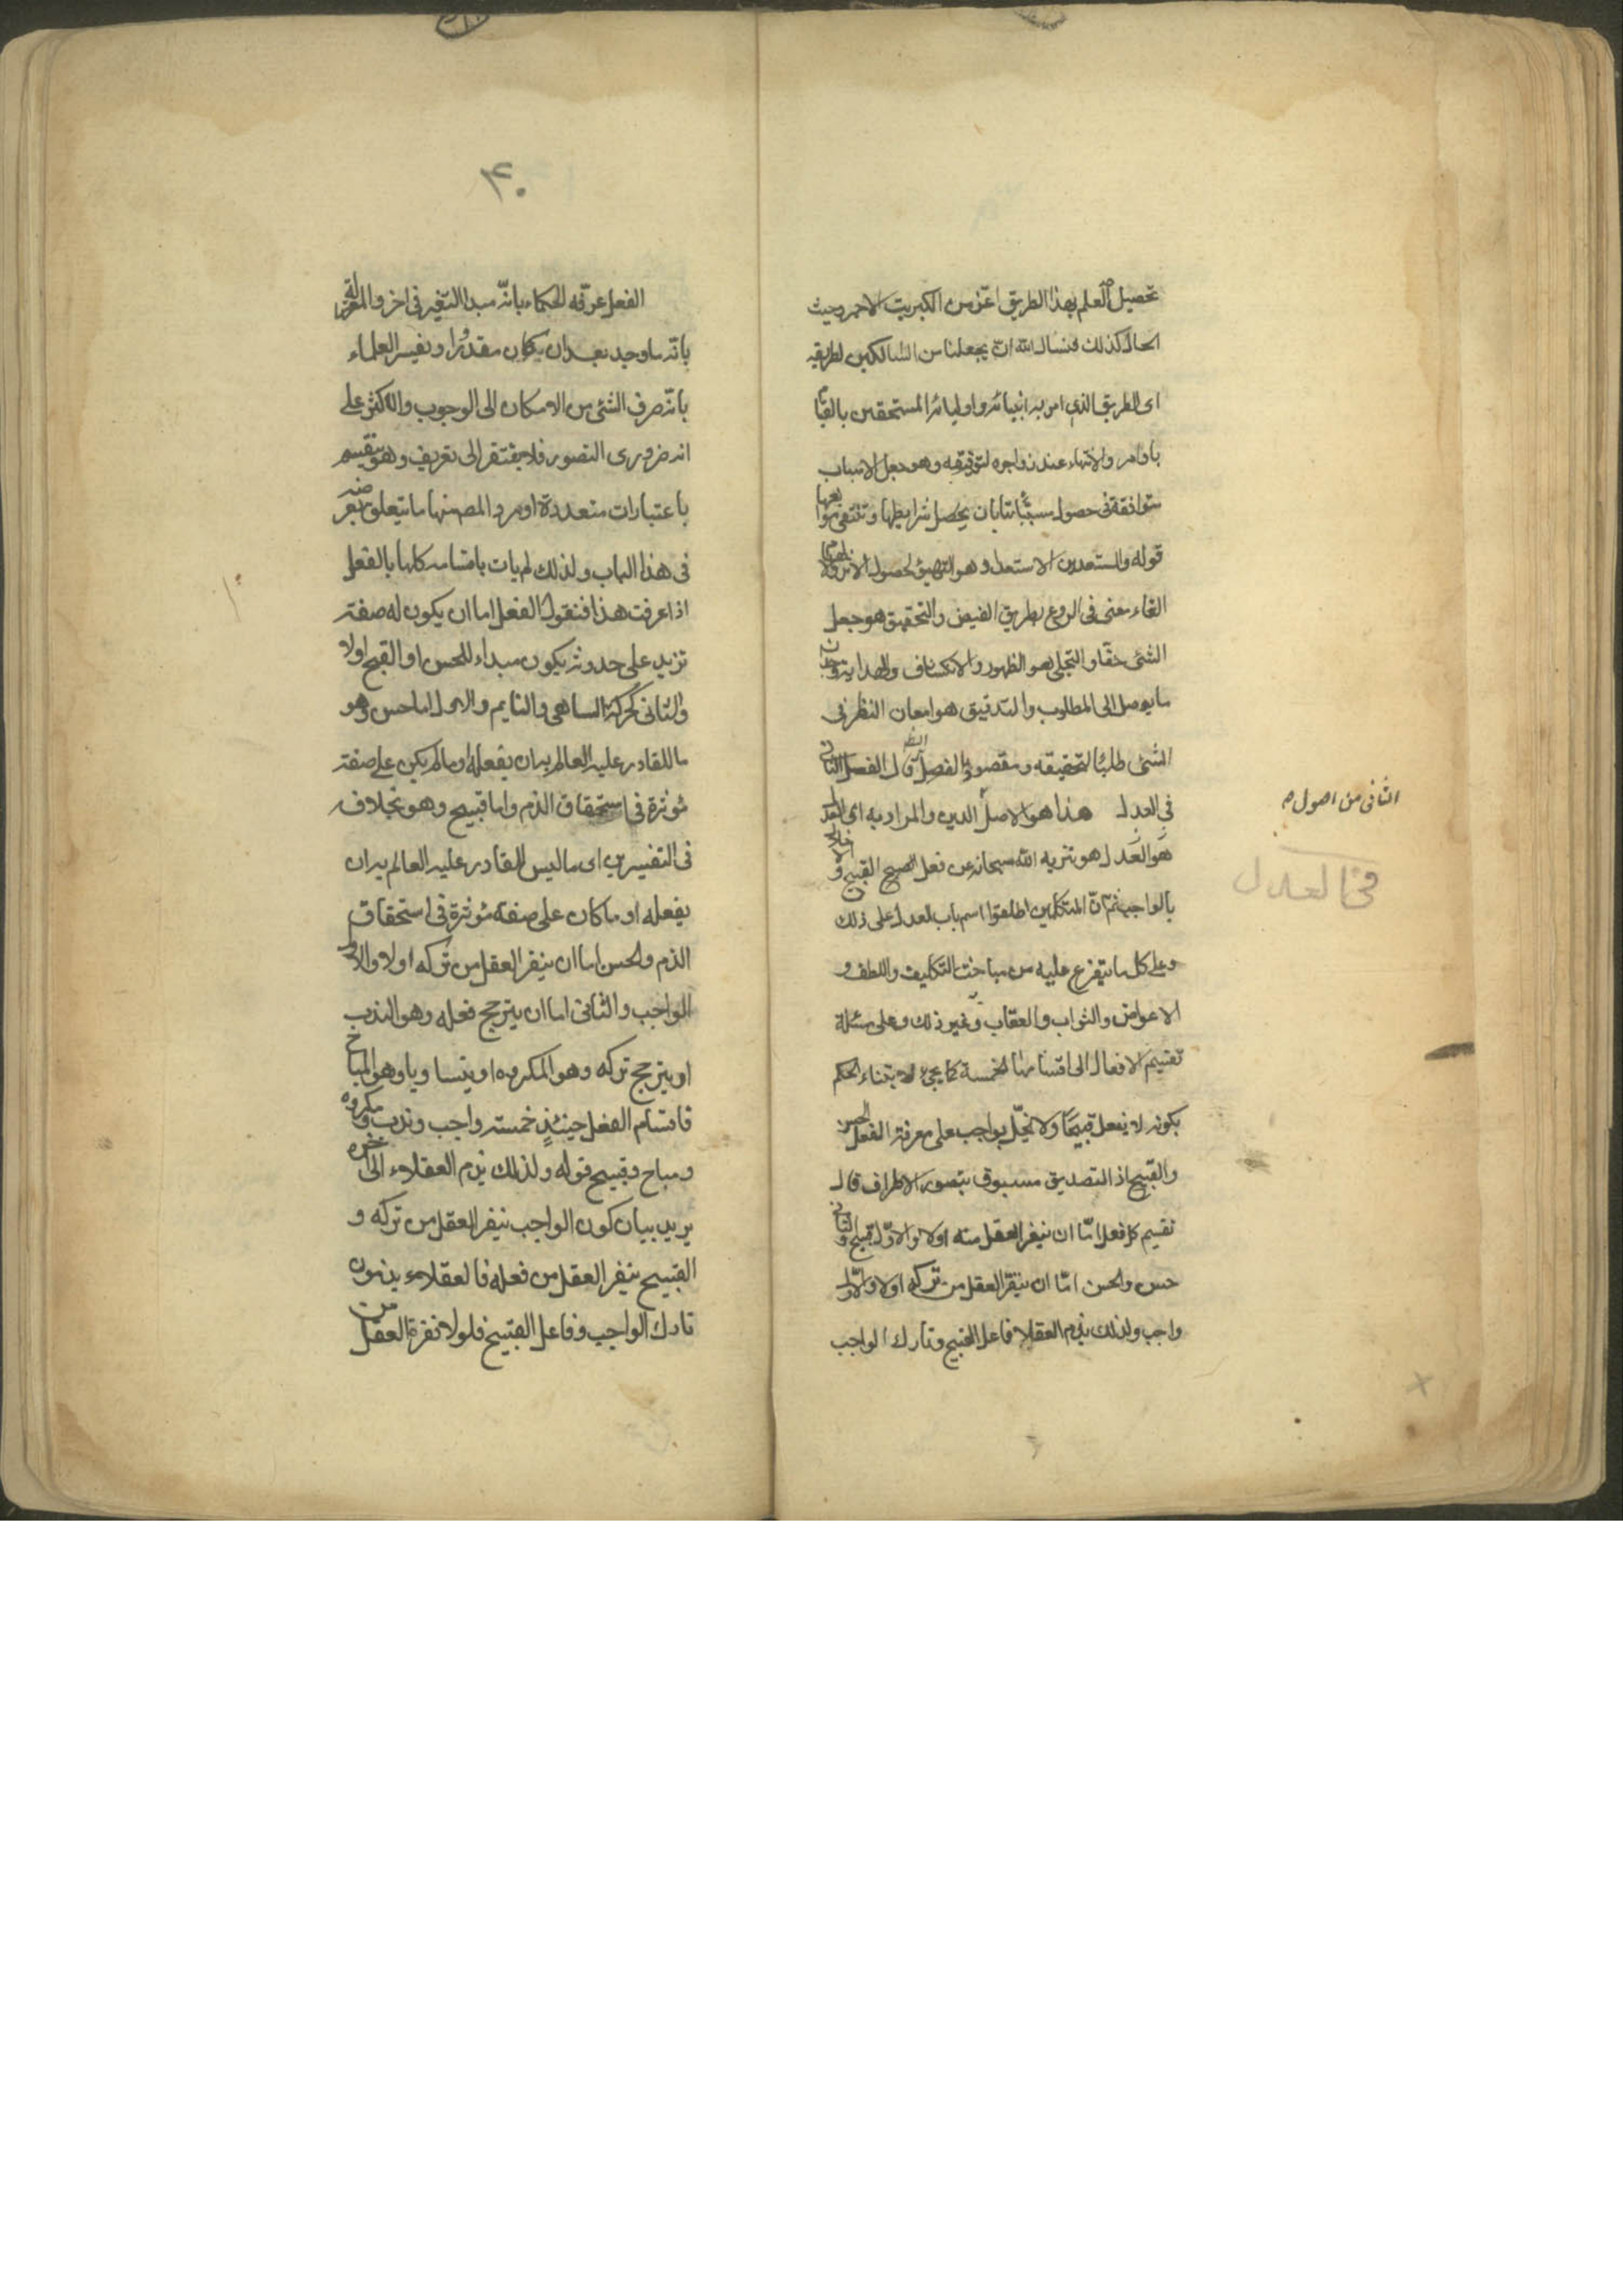 تحصيل العلم بهذا الطريق اعز من الكبريت الاحمر وحيث
الحال كذلك فنسال الله ان يجعلنا من السالكين لطريقه
اى الطريق الذي امر به انبيائه واوليائه المستحقين بالقيام
باوامره والانتهاء عند زواجره لتوفيقه وهو جعل الاسباب
متوافقة فى حصول مسبباتها بان يحصل شرايطها وتنتفى موانعها
قوله والمستعدين الاستعداد هو التهيؤ لحصول الامر
القاء معنى فى الروع بطريق الفيض والتحقيق هو جعل
الشئ حقا والتجلى هو الظهور والانكشاف والهداية وجدان
ما يوصل الى المطلوب والتدقيق هو امعان النظر فى
الشئ طلبا لتحقيقه ومقصوده بالفصل النظر قال الفصل الثانى
فى العدل هذا هو الاصل الدين والمراد به اى العدل
هو العدل هو تنزيه الله سبحانه عن فعل القبيح والاخلال
بالواجب ثم ان المتكلمين اطلعوا اسم باب العدل على ذلك
وعلى كل ما يتفرع عليه من مباحث التكليف واللطف و
الاعواض والثواب والعقاب وغير ذلك وعلى مسئلة
تقسيم الافعال الى اقسامها الخمسة كما يجئ لابتناء الحكم
بكونه لا يفعل قبيحا ولا يخل بواجب على معرفة الفعل الحسن
والقبيح اذ التصديق مسبوق بتصور الاطراف قال
تقسيم كل فعل امّا ان ينفر العقل منه اولا والاوّل قبيح والثانى
حسن والحسن امّا ان ينفر العقل من تركه اولا والاوّل
واجب ولذلك يذم العقلا فاعل القبيح وتارك الواجب
الثانى من اصول
فى العدل
٣٠
الفعل عرّفه الحكماء بانّه مبدا التغير فى اخر والمعتزلة
بانّه ما وجد بعد ان كان مقدورا وبفيس العلماء
بانّه صرف الشئ من الامكان الى الوجوب والاكثر على
انه ضرورى التصور فلا يفتقر الى تعريف وهو ينقسم
باعتبارات متعددة اورد المصـ منها ما يتعلق بغرضه
فى هذا الباب ولذلك لم يات باقسامه كلها بالفعل
اذا عرفت هذا فنقول الفعل اما ان يكون له صفة
تزيد على حدوثه يكون مبداء للحسن او القبح اولا
والثانى كحركة الساهى والنايم والاول اما حسن وهو
ما للقادر عليه العالم به ان يفعله او ما لم يكن على صفة
مؤثرة فى استحقاق الذم واما قبيح وهو بخلافه
فى التفسيرين اى ما ليس للقادر عليه العالم به ان
يفعله او ما كان على صفة مؤثرة فى استحقاق
الذم والحسن اما ان ينفر العقل من تركه اولا والاول
الواجب والثانى اما ان يترجح فعله وهو الندب
او يترجح تركه وهو المكروه او يتساويا وهو المباح
فاقسام الفعل حينئذ خمسة واجب وندب ومكروه
ومباح وقبيح قوله ولذلك يذم العقلاء الى اخره
يريد بيان كون الواجب ينفر العقل من تركه و
القبيح ينفر العقل من فعله فالعقلاء يذمون
تارك الواجب وفاعل القبيح فلولا نفرة العقل من